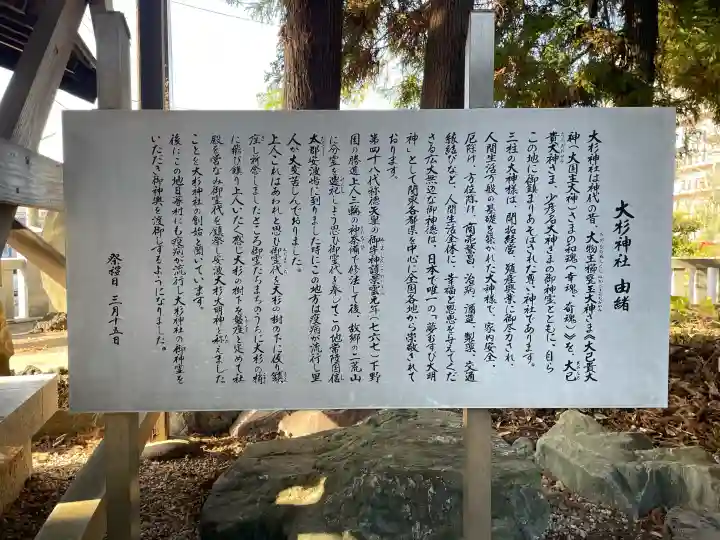 大杉神社 由緒
大杉神社は神代の昔、大物主櫛甕玉大神さま《大己貴大
神(大国主大神)さまの和魂(幸魂、奇魂)》を、大己
貴大神さま、少彦名大神さまの御神霊とともに、自ら
この地に御鎮まりあそばされた尊い神社であります。
三柱の大神様は、開拓経営、殖産興業に御尽力され、
人間生活一般の基礎を築かれた大神様で、家内安全・
厄除け、方位除け、商売繁昌、治病、醸造、製薬、交通
縁結びなど、人間生活全体に、幸福と恩恵を与えてくだ
さる広大無辺な御神徳は、日本で唯一の「夢むすび大明
神」として関東各都県を中心に全国各地から崇敬されて
おります。
第四十八代称徳天皇の御年神護景雲元年(七六七)下野
国の勝道上人三輪の神奈備で修法して後、故郷の二荒山
に分霊を遷祀しようと思い御霊代を奉じてこの他常陸国信
太郡安波嶋に到りました時にこの地方は疫病が流行し里
人が大変苦しんでおりました。
上人これはあわれと思い御霊代を大杉の樹の下に後り鎮
座し祈念しましたところ御霊たちまちのうちに大杉の樹
に飛び鎮り上人いたく感じ大杉の樹下を斎庭と定めて社
殿を営なみ御霊代を鎮祭し安波大杉大明神と称えました
ことを大杉神社の創始と聞いています。
後にこの地日暮村にも疫病が流行し大杉神社の御神霊を
いただき御神輿を渡御しするようになりました。
祭禮日 三月十五日